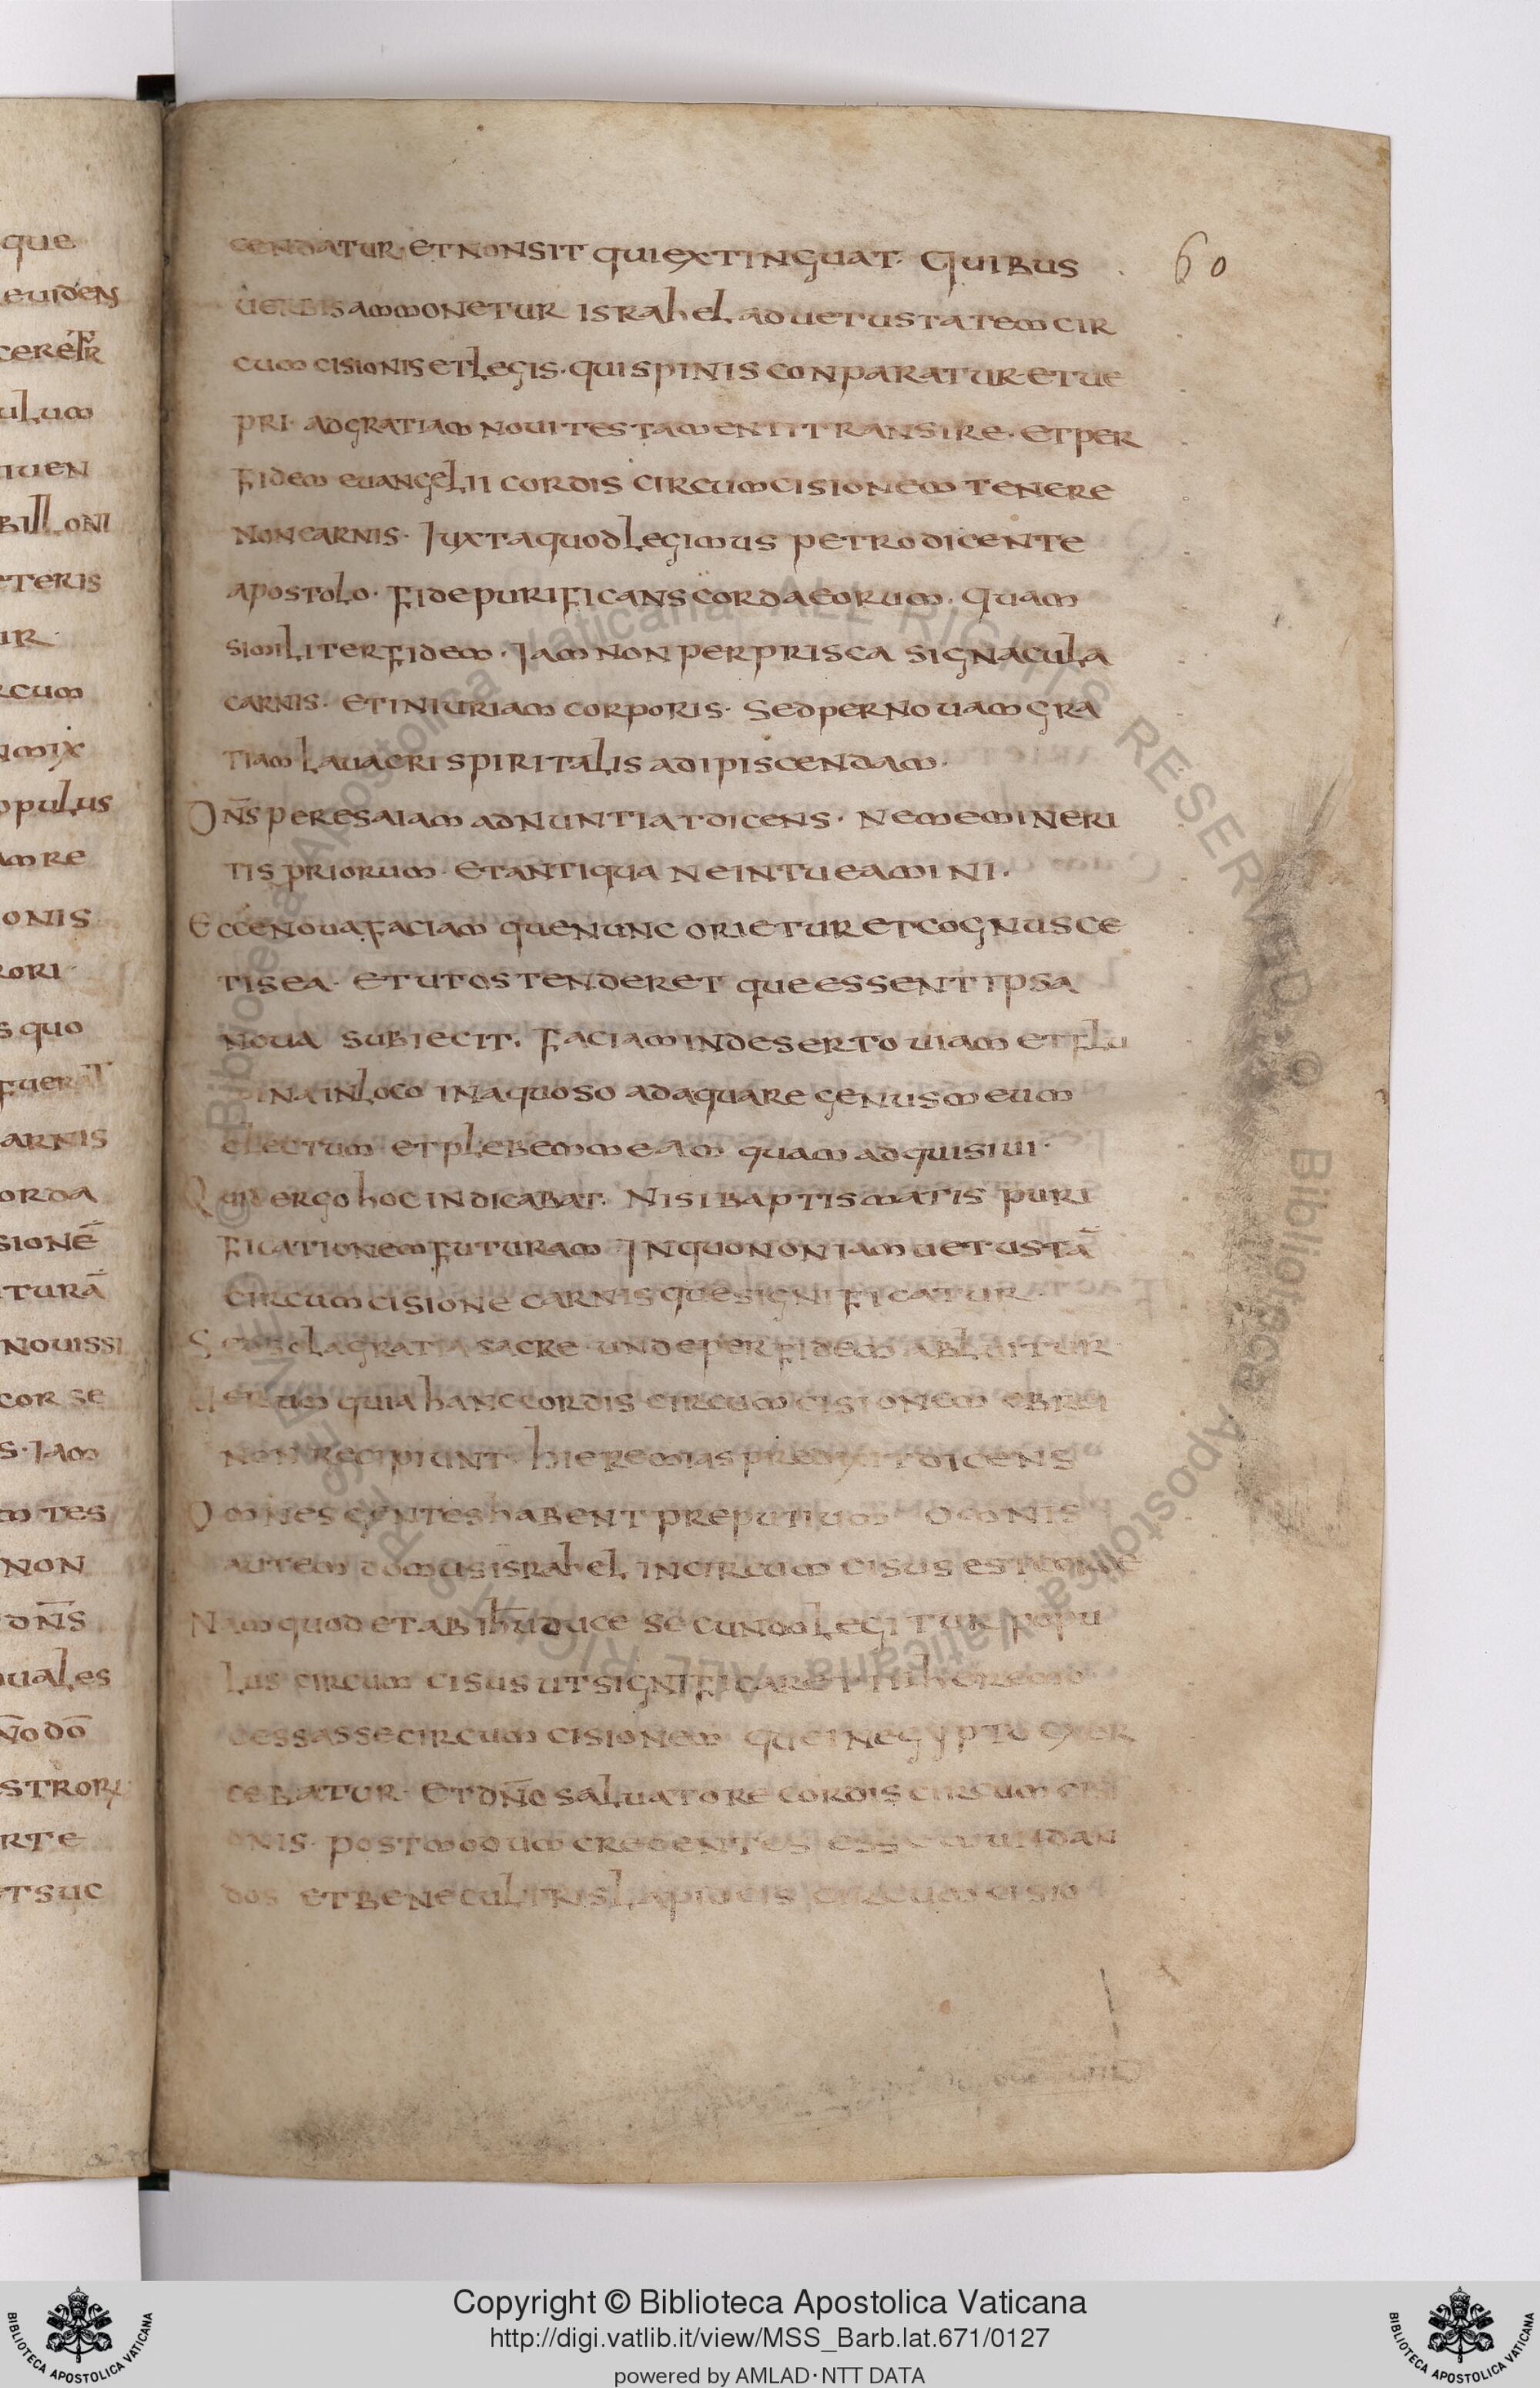 que
euidens
ulum
iuen
billoni
eteris
ur
rcum
nmix
opulus
am re
onis
rori
s quo
fuerat
arnis
orda
sionē
turā
nouissi
cor se
s· Iam
m tes
non
dn̄s
uales
n̄o dō
rte
et suc
60
cendatur· et non sit qui extinguat· Quibus
uerbis ammonetur israhel ad uetustatem cir
cumcisionis et legis· qui spinis conparatur et ue
pri· ad gratiam noui testamenti transire· et per
fidem euangelii cordis circumcisionem tenere
non carnis· Iuxta quod legimus petro dicente
apostolo· fide purificans corda eorum· quam
similiter fidem· Iam non per prisca signacula
carnis· et iniuriam corporis· Sed per nouam gra
tiam lauacri spiritalis adipiscendam·
Dn̄s per esaiam adnuntiat dicens· Ne memineri
tis priorum· et antiqua ne intueamini·
Ecce noua faciam que nunc orietur et cognusce
tis ea· et ut ostenderet que essent ipsa
noua subiecit· Faciam in deserto uiam et flu
mina in loco inaquoso adaquare genus meum
electum· et plebem meam quam adquisiui·
Quid ergo hoc indicabat· Nisi baptismatis puri
ficationem futuram In quo non iam uetustā
circumcisione carnis que significatur·
Sed sola gratia sacre unde per fidem abluitur
Uerum quia hanc cordis circumcisionem ebrei
non recipiunt· hieremias predixit dicens
Omnes gentes habent preputium· Omnis
autem domus israhel incircumcisus est corde
Nam quod et ab ih̄u duce secundo legitur popu
lus circumcisus ut significaret
cessasse circumcisionem que in egypto exer
cebatur· Et dn̄o saluatore cordis circumcisi
onis· postmodum credentes esse mundan
dos et bene cultris lapideis circumcisio
Copyright © Biblioteca Apostolica Vaticana
http://digi.vatlib.it/view/MSS_Barb.lat.671/0127
powered by AMLAD·NTT DATA